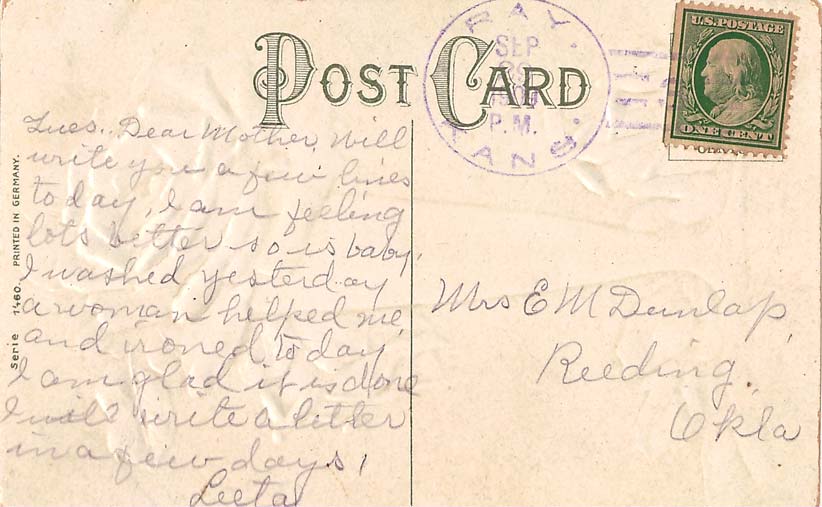 POST CARD
RAY
SEP
1909
P.M.
KANS.
U.S. POSTAGE
ONE CENT
Serie 1460. PRINTED IN GERMANY.
Tues. Dear Mother, Will
write you a few lines
today, I am feeling
lots better so is baby,
I washed yesterday
a woman helped me,
and ironed today
I am glad it is done
I will write a letter
in a few days,
Leeta
Mrs E M Dunlap,
Reeding,
Okla